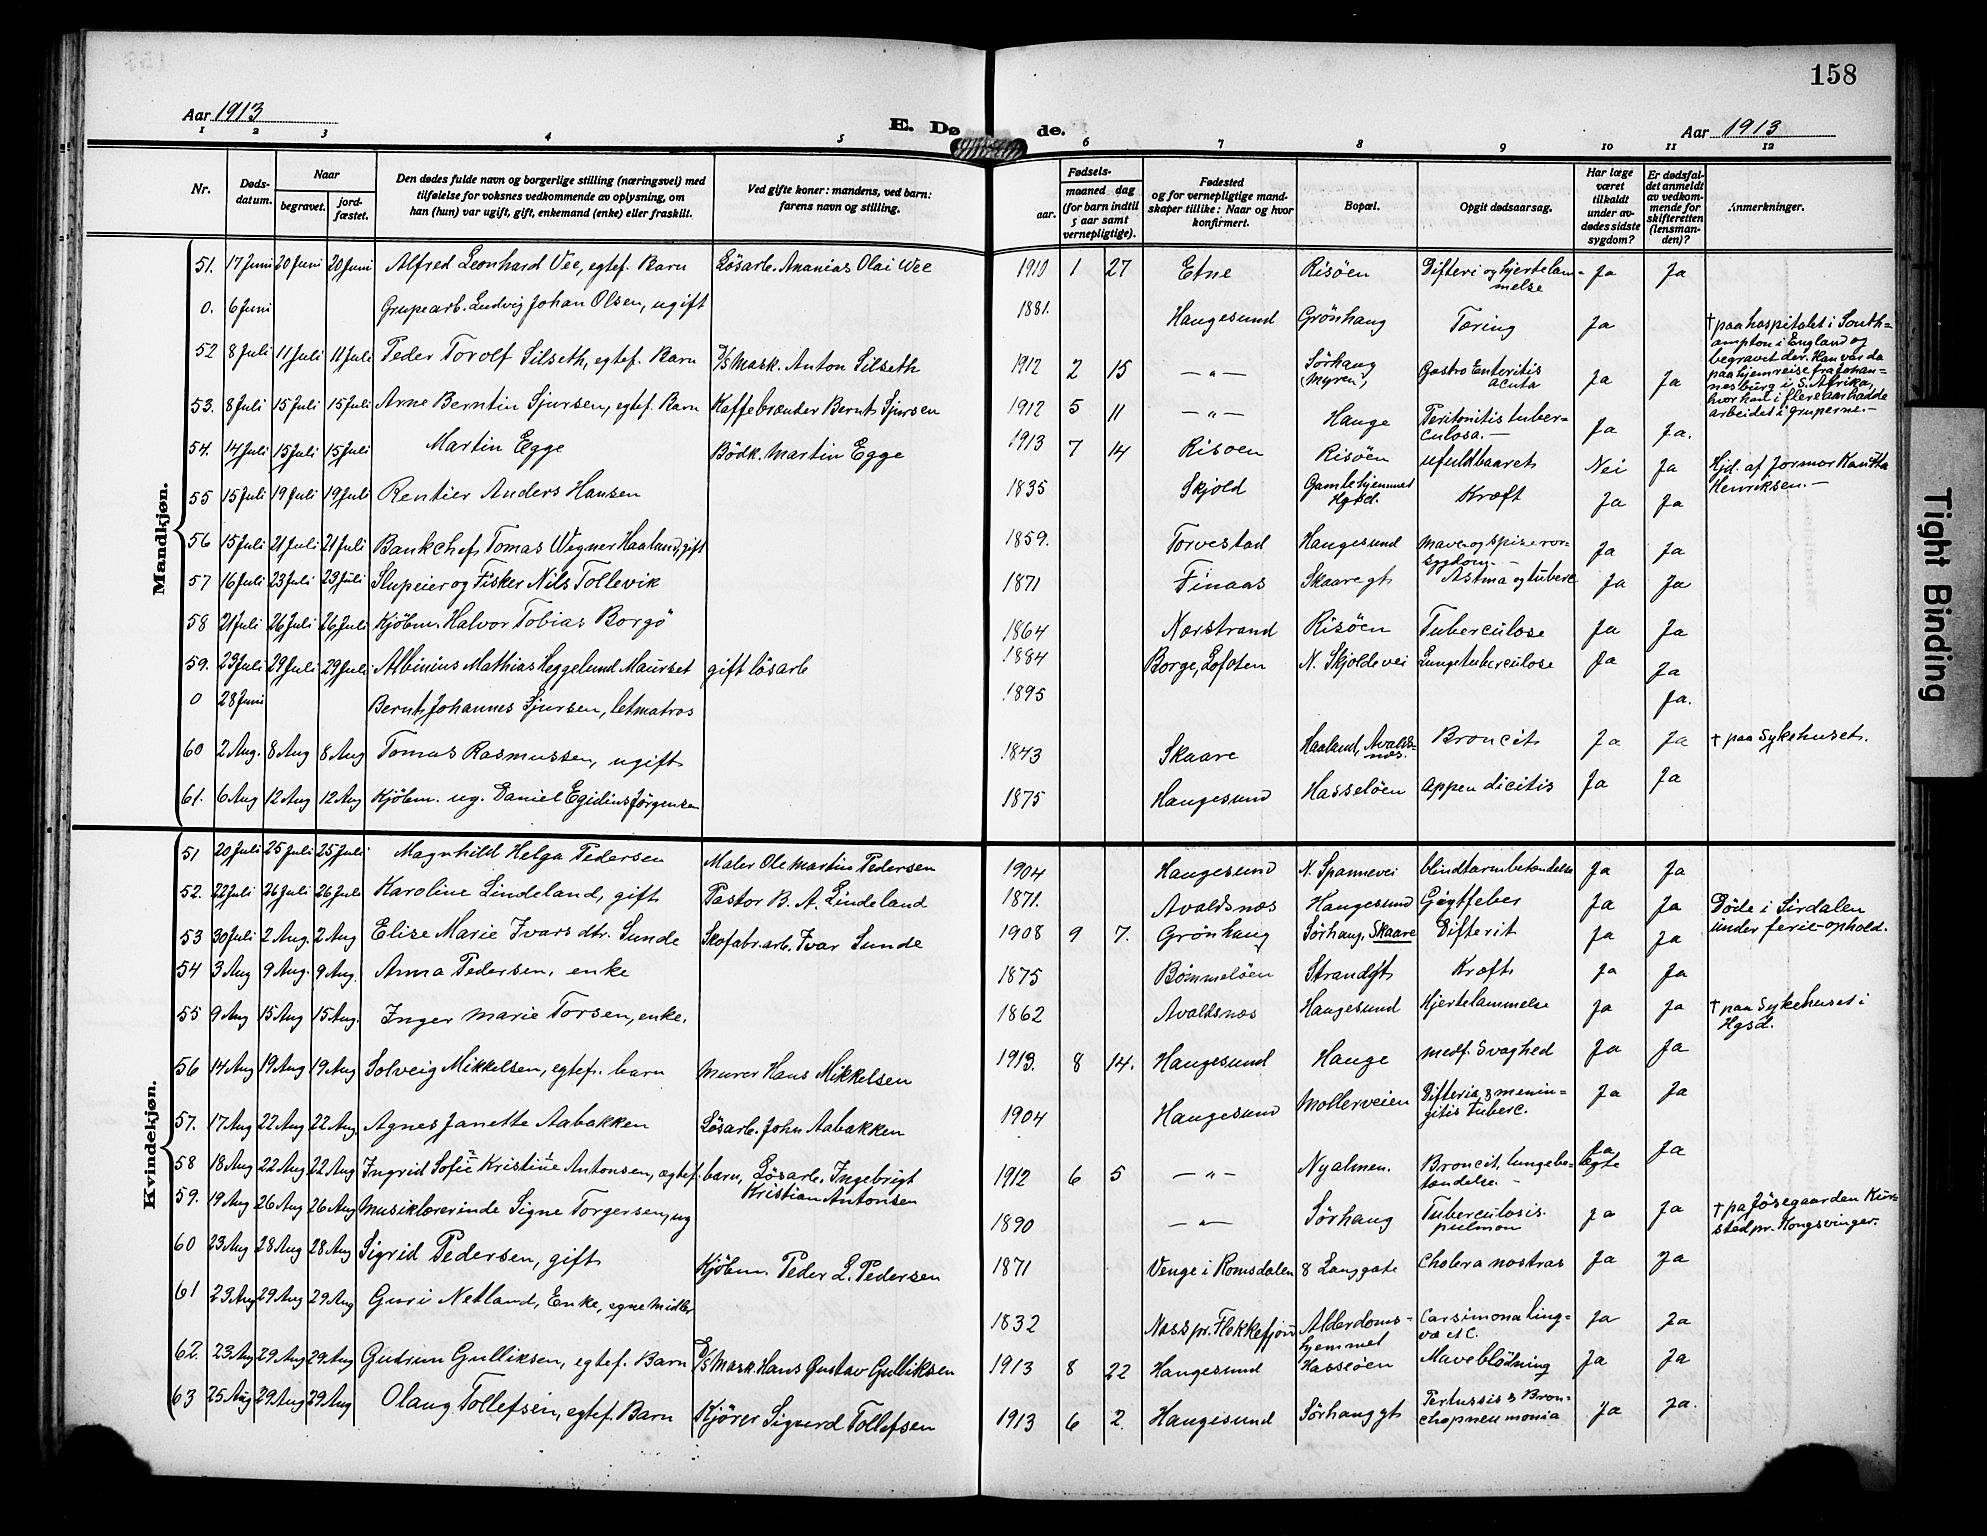 158
Aar 1913
E. Dø de.
Aar 1913
1 2 3 4 5 6 7 8 9 10 11 12
Nr.
Døds-
datum.
Naar
begravet.
jord-
fæstet.
Den dødes fulde navn og borgerlige stilling (næringsvei) med
tilføielse for voksnes vedkommende av oplysning, om
han (hun) var ugift, gift, enkemand (enke) eller fraskilt.
Ved gifte koner: mandens, ved barn:
farens navn og stilling.
Fødsels-
aar.
maaned dag
(for barn indtil
5 aar samt
vernepligtige).
Fødested
og for vernepligtige mand-
skaper tillike: Naar og hvor
konfirmert.
Bopæl.
Opgit dødsaarsag.
Har læge
været
tilkaldt
under av-
dødes sidste
sygdom?
Er dødsfal-
det anmeldt
av vedkom-
mende for
skifteretten
(lensman-
den)?
Anmerkninger.
Mandkjøn.
51. 17 Juni 20 Juni 20 Juni Alfred Leonhard Vee, egtef. Barn Løsarb. Ananias Olai Vee 1910 1 27 Etne Risöen Difteri og hjertelam-
melse Ja Ja
0. 6 Juni Grupearb. Ludvig Johan Olsen, ugift 1881. Haugesund Grönhaug Tæring Ja
† paa hospitalet i South-
ampton i England og
begravet der. Han var da
paa hjemreise fra Johan-
nesburg i S. Afrika,
hvor han i flere aar hadde
arbeidet i gruperne.-
52 8 Juli 11 Juli 11 Juli Peder Torolf Silseth, egtef. Barn D/S Mask. Anton Silseth 1912 2 15 - " - Sörhaug
(Myren) Gastro Enteritis
acuta Ja Ja
53. 8 Juli 15 Juli 15 Juli Arne Berntin Sjursen, egtef. Barn Kaffebrænder Bernt Sjursen 1912 5 11 - " - Hauge Peritonitis tuber-
culosa.- Ja Ja.
54. 14 Juli 15 Juli 15 Juli Martin Egge Bödk. Martin Egge 1913 7 14 Risöen Risöen ufuldbaaret Nei Ja Hjd. af Jormor Kan Ha
Henriksen.-
55 15 Juli 19 Juli 19 Juli Rentier Anders Hansen 1835 Skjold Gamlehjemmet
Hgsd. Kræft Ja Ja
56 15 Juli 21 Juli 21 Juli Bankchef Tomas Wegner Haaland, gift 1859. Torvestad Haugesund Mave og spiserör-
sygdom.- Ja Ja
57 16 Juli 23 Juli 23 Juli Slupeier og Fisker Nils Tollevik 1871 Finaas Skaaregt Astma og tuberc Ja Ja
58 21 Juli 26 Juli 26 Juli Kjöbm. Halvor Tobias Borgö 1864 Nærstrand Risöen Tuberculose Ja Ja
59. 23 Juli 29 Juli 29 Juli Albinius Mathias Heggelund Maurset gift lösarb 1884 Borge, Lofoten N. Skjoldevei Lungetuberculose Ja Ja
0 28 Juni Bernt Johannes Sjursen, letmatros 1895 Ja.
60 2 Aug. 8 Aug 8 Aug Tomas Rasmussen, ugift 1843 Skaare Haaland, Avalds-
næs. Broncit Ja Ja † paa Sykehuset.
61. 6 Aug 12 Aug 12 Aug Kjöbm. ug. Daniel Egidius Jörgensen 1875 Haugesund Hasselöen appendicitis Ja Ja
Kvindekjøn.
51 20 Juli 25 Juli 25 Juli Magnhild Helga Pedersen Maler Ole Martin Pedersen 1904 Haugesund N. Spannevei blindtarmbetændelse Ja Ja
52. 22 Juli 26 Juli 26 Juli Karoline Lindeland, gift Pastor B. A. Lindeland 1871. Avaldsnæs Haugesund Gigtfeber Ja Ja
Döde i Sirdalen
under ferie-ophold.
53 30 Juli 2 Aug. 2 Aug Elise Marie Ivars dtr. Sunde Skofabr.arb. Ivar Sunde 1908 9 7. Grönhaug Sörhaug, Skaare Difterit Ja Ja
54 3 Aug 9 Aug. 9 Aug. Anna Pedersen, enke 1875 Bömmelöen Strandgt Kræft Ja Ja
55 9 Aug 15 Aug 15 Aug. Inger Marie Torsen, enke. 1862 Avaldsnæs Haugesund Hjertelammelse Ja Ja † paa Sykehuset i
Hgsd.
56 14 Aug 19 Aug 19 Aug Solveig Mikkelsen, egtef. barn Murer Hans Mikkelsen 1913. 8 14. Haugesund Hauge medf. Svaghed Ja Ja
57. 17 Aug 22 Aug 22 Aug. Agnes Janette Aabakken Lösarb. John Aabakken 1904 Haugesund Mollerveien Difteria & menin-
gitis tuberc. Ja Ja
58 18 Aug 22 Aug 22 Aug Ingrid Sofie Kristine Antonsen, ægtef. barn, Lösarb. Ingebrigt
Kristian Antonsen 1912 6 5 - " - Nyalmen. Broncit, lungebe-
tændelse.- Ja
59. 19 Aug 26 Aug 26 Aug Musiklærerinde Signe Torgersen, ug 1890 - " - Sörhaug Tuberculosis
pulmon Ja Ja † pa Jösegaarden Kur-
sted pr. Kongsvinger.
60 23 Aug 28 Aug 28 Aug Sigrid Pedersen, gift Kjöbm. Peder L. Pedersen 1871 Venge i Romsdalen 8 Langgate Cholera nostras Ja Ja
61 23 Aug 29 Aug 29 Aug Guri Netland, Enke, egne Midler 1832 Næss pr. Flekkefjord Alderdoms-
hjemmet Carsinoma ling-
væ etc. Ja Ja
62. 23 Aug 29 Aug 29 Aug Gudrun Gulliksen, egtef. Barn D/S Mask. Hans Gustav Gulliksen 1913 8 22 Haugesund Hasseöen Maveblödning Ja Ja
63 25 Aug 29 Aug 29 Aug Olaug Tollefsen, egtef. Barn Kjörer Sigurd Tollefsen 1913 6 2. Haugesund Sörhauggt Pertussis & Bron-
chopneumonia Ja Ja.
Tight Binding